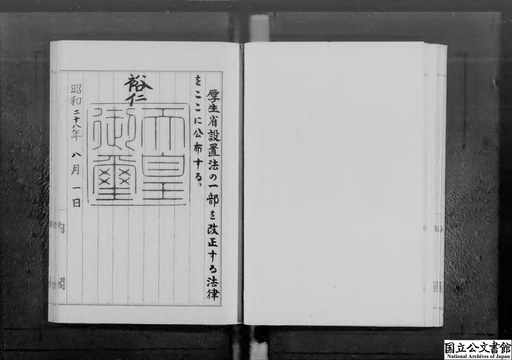 厚生省設置法の一部を改正する法律
をここに公布する。
裕仁
天皇
御璽
昭和二十八年八月一日
内閣
国立公文書館
National Archives of Japan